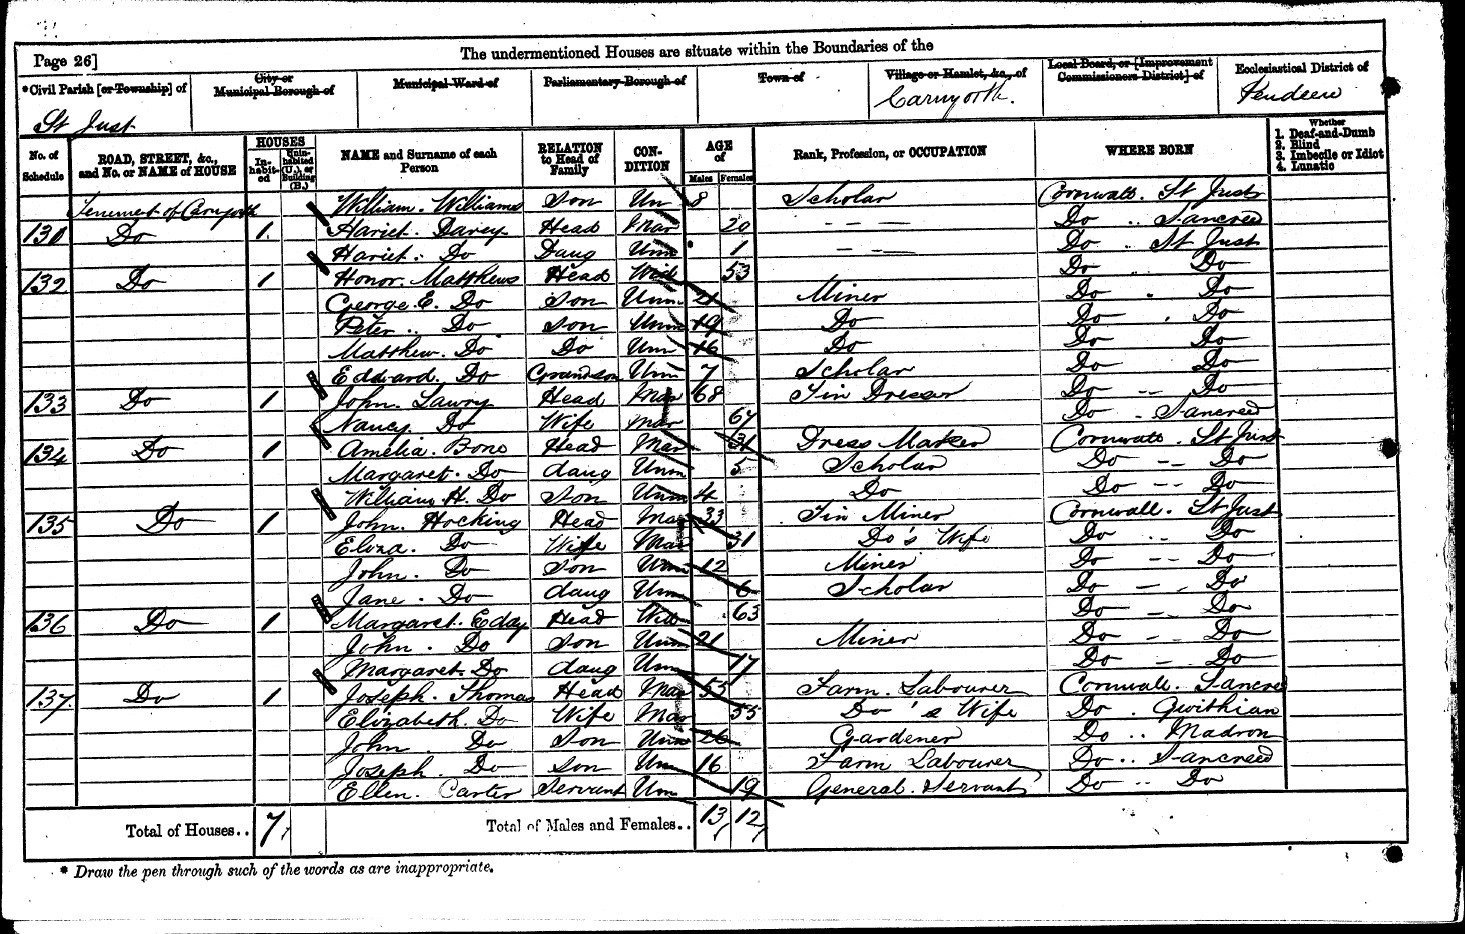 Page 26]
The undermentioned Houses are situate within the Boundaries of the
*Civil Parish [or Township] of
City or Municipal Borough of
Municipal Ward of
Parliamentary Borough of
Town of
Village or Hamlet, &c., of
Local Board, or [Improvement Commissioners District] of
Ecclesiastical District of
St Just
Carnyorth.
Pendeen
No. of Schedule
ROAD, STREET, &c., and No. or NAME of HOUSE
HOUSES
In-habit-ed
Unin-habited (U.), or Building (B.)
NAME and Surname of each Person
RELATION to Head of Family
CON-DITION
AGE of
Males
Females
Rank, Profession, or OCCUPATION
WHERE BORN
Whether
1. Deaf-and-Dumb
2. Blind
3. Imbecile or Idiot
4. Lunatic
Tenement of Carnyorth William. Williams Son Un 8 Scholar Cornwall. St Just
131 Do 1 Hariet. Davey Head Mar 20 - - Do .. Sancreed
Hariet. Do Daug Unm 1 - - Do .. St Just
132 Do 1 Honor. Matthews Head Wid 53 Do .. Do
George E. Do Son Unm 21 Miner Do . Do
Peter.. Do Son Unm 19 Do Do . Do
Matthew. Do Do Unm 16 Do Do Do
Edward. Do Grandson Unm 7 Scholar Do Do
133 Do 1 John. Lawry Head Mar 68 Tin Dresser Do -- Do
Nancy. Do Wife Mar 67 Do . Sancreed
134 Do 1 Amelia. Bone Head Mar 31 Dress Maker Cornwall. St Just
Margaret. Do daug Unm 5 Scholar Do -- Do
William. H. Do Son Unm 4 Do Do -- Do
135 Do 1 John. Hocking Head Mar 33 Tin Miner Cornwall. St Just
Eliza. Do Wife Mar 31 Do's Wife Do .. Do
John. Do Son Unm 12 Miner Do -- Do
Jane. Do daug Unm 6 Scholar Do - . Do
136 Do 1 Margaret. Eday Head Wid 63 Do - Do
John. Do Son Unm 21 Miner Do - Do
Margaret. Do daug Unm 17 Do - Do
137. Do 1 Joseph. Thomas Head Mar 55 Farm. Labourer Cornwall. Sancreed
Elizabeth. Do Wife Mar 55 Do's Wife Do . Gwithian
John . Do Son Unm 26 Gardener Do .. Madron
Joseph. Do Son Un 16 Farm Labourer Do .. Sancreed
Ellen. Carter Servant Un 19 General. Servant Do -- Do
Total of Houses.. 7 Total of Males and Females.. 13 12
* Draw the pen through such of the words as are inappropriate.